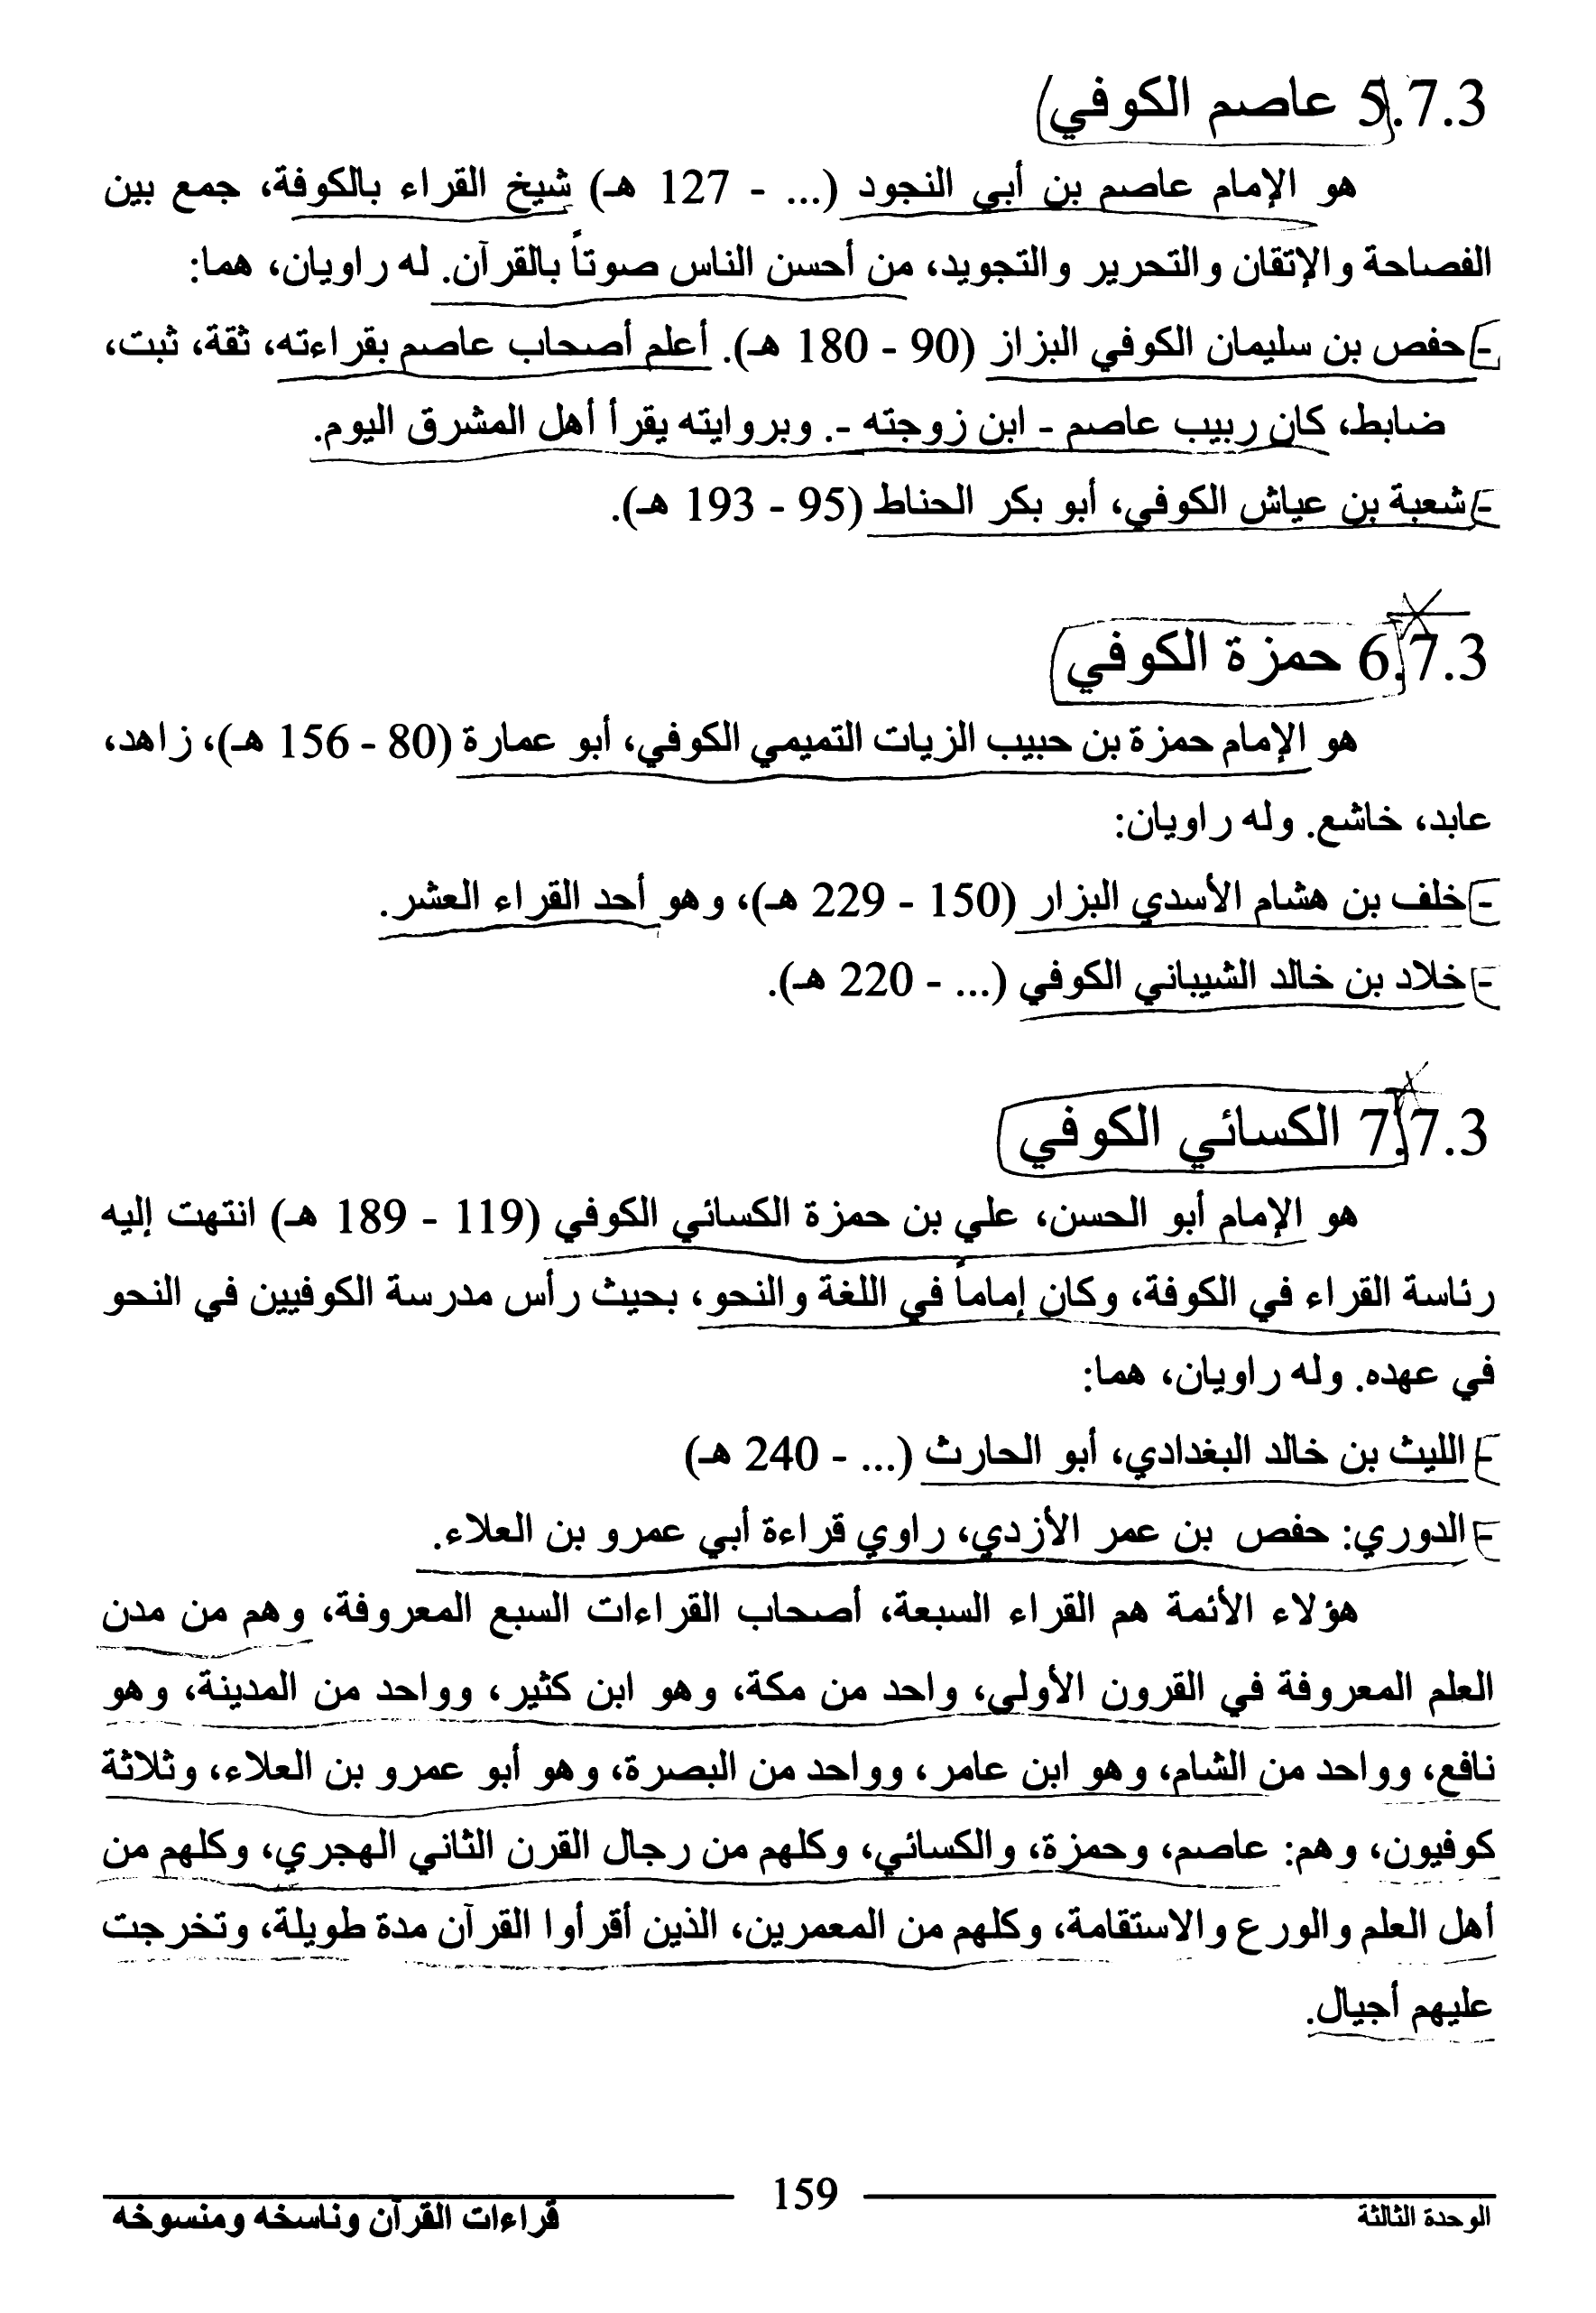 5.7.3 عاصم الكوفي
هو الإمام عاصم بن أبي النجود (... - 127 هـ) شيخ القراء بالكوفة، جمع بين
الفصاحة والإتقان والتحرير والتجويد، من أحسن الناس صوتاً بالقرآن. له راويان، هما:
- حفص بن سليمان الكوفي البزاز (90 - 180 هـ). أعلم أصحاب عاصم بقراءته، ثقة، ثبت،
ضابط، كان ربيب عاصم - ابن زوجته -. وبروايته يقرأ أهل المشرق اليوم.
- شعبة بن عياش الكوفي، أبو بكر الحناط (95 - 193 هـ).
6.7.3 حمزة الكوفي
هو الإمام حمزة بن حبيب الزيات التميمي الكوفي، أبو عمارة (80 - 156 هـ)، زاهد،
عابد، خاشع. وله راويان:
- خلف بن هشام الأسدي البزار (150 - 229 هـ)، وهو أحد القراء العشر.
- خلاد بن خالد الشيباني الكوفي (... - 220 هـ).
7.7.3 الكسائي الكوفي
هو الإمام أبو الحسن، علي بن حمزة الكسائي الكوفي (119 - 189 هـ) انتهت إليه
رئاسة القراء في الكوفة، وكان إماماً في اللغة والنحو، بحيث رأس مدرسة الكوفيين في النحو
في عهده. وله راويان، هما:
- الليث بن خالد البغدادي، أبو الحارث (... - 240 هـ)
- الدوري: حفص بن عمر الأزدي، راوي قراءة أبي عمرو بن العلاء.
هؤلاء الأئمة هم القراء السبعة، أصحاب القراءات السبع المعروفة، وهم من مدن
العلم المعروفة في القرون الأولى، واحد من مكة، وهو ابن كثير، وواحد من المدينة، وهو
نافع، وواحد من الشام، وهو ابن عامر، وواحد من البصرة، وهو أبو عمرو بن العلاء، وثلاثة
كوفيون، وهم: عاصم، وحمزة، والكسائي، وكلهم من رجال القرن الثاني الهجري، وكلهم من
أهل العلم والورع والاستقامة، وكلهم من المعمرين، الذين أقرأوا القرآن مدة طويلة، وتخرجت
عليهم أجيال.
159
الوحدة الثالثة
قراءات القرآن وناسخه ومنسوخه